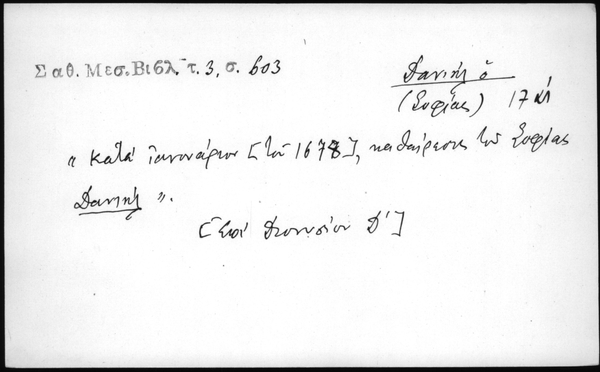 Σαθ. Μεσ. Βιβλ. τ. 3, σ. 603
Δανιήλ ὁ
(Σοφίας) 17 αἰ
« κατά ἰαννουάριον [τοῦ 1678], καθαίρεσις τοῦ Σοφίας
Δανιήλ ».
[Ἐπί Διονυσίου Δ΄]